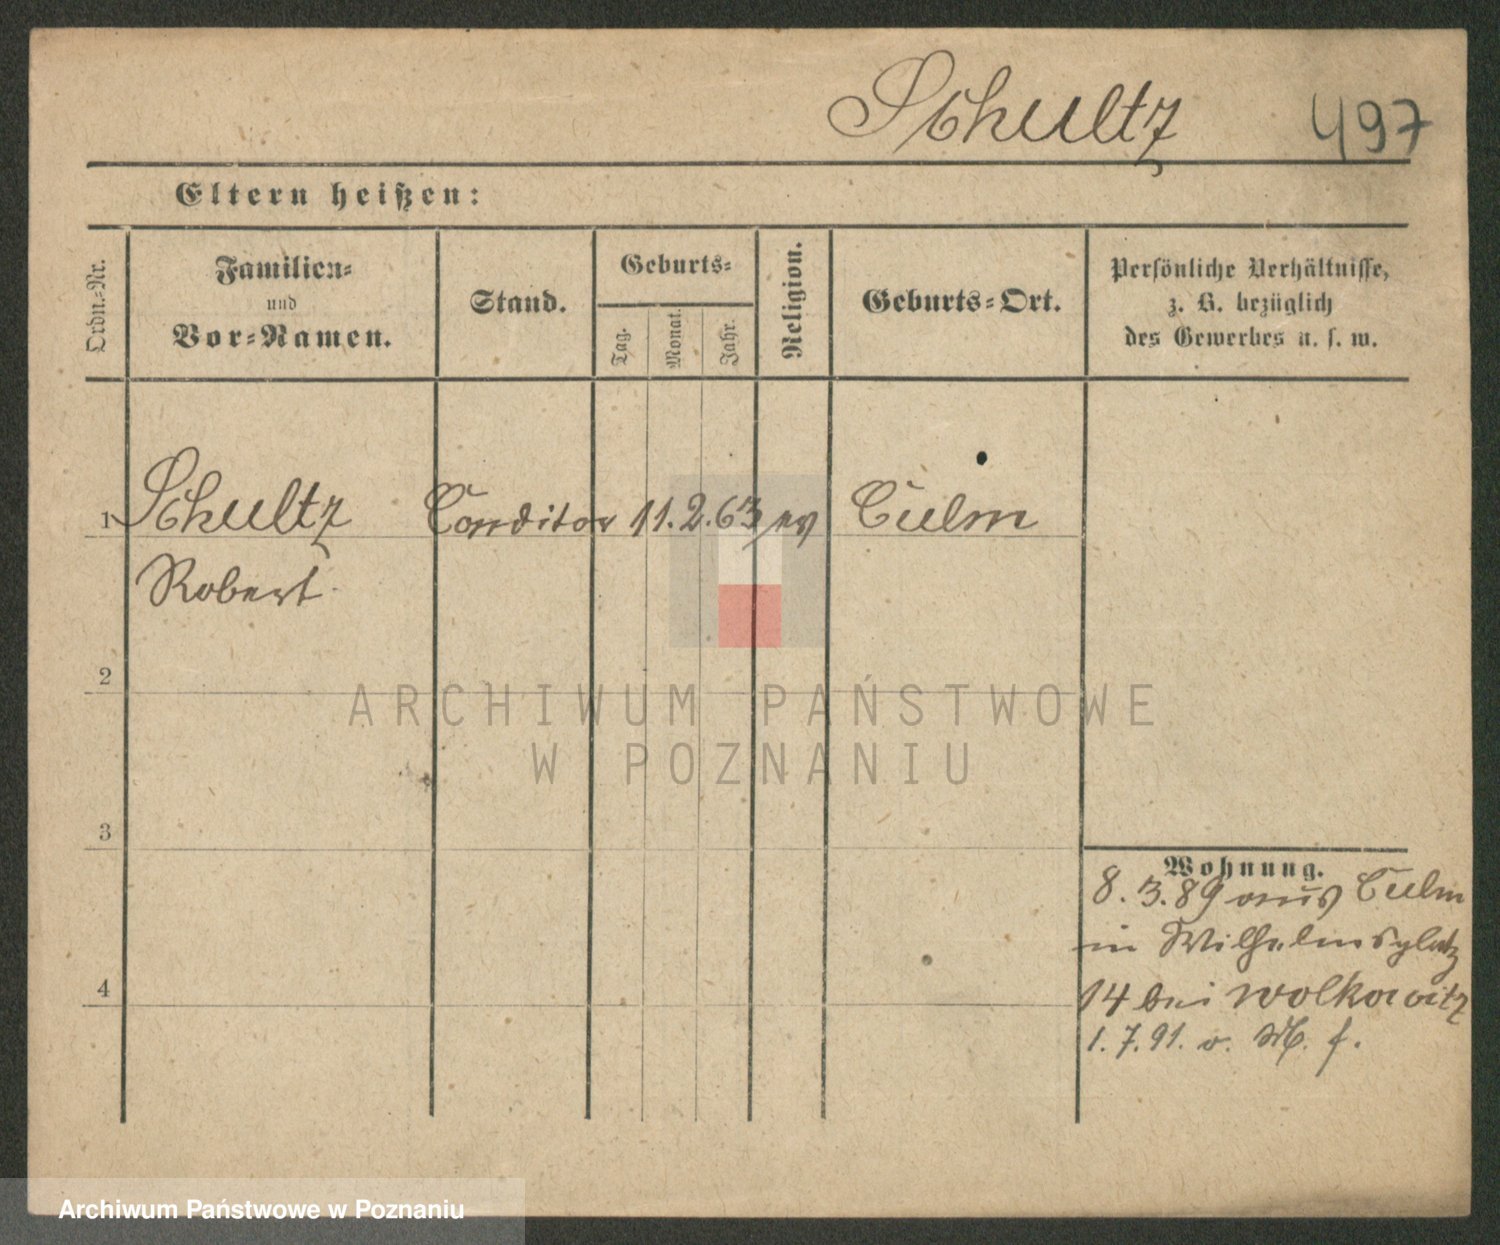 Schultz 497
Eltern heißen:
Ordn.-Nr.
Familien-
und
Vor-Namen.
Stand.
Geburts-
Tag.
Monat.
Jahr.
Religion.
Geburts-Ort.
Persönliche Verhältnisse,
z. B. bezüglich
des Gewerbes u. s. w.
1 Schultz Conditor 11. 2. 63 ev Culm
Robert
2
3
4
Wohnung.
8. 3. 89 aus Culm
in Wilhelmsplatz
14 bei Wolkowitz
1. 7. 91. v. M. f.
ARCHIWUM PAŃSTWOWE
W POZNANIU
Archiwum Państwowe w Poznaniu